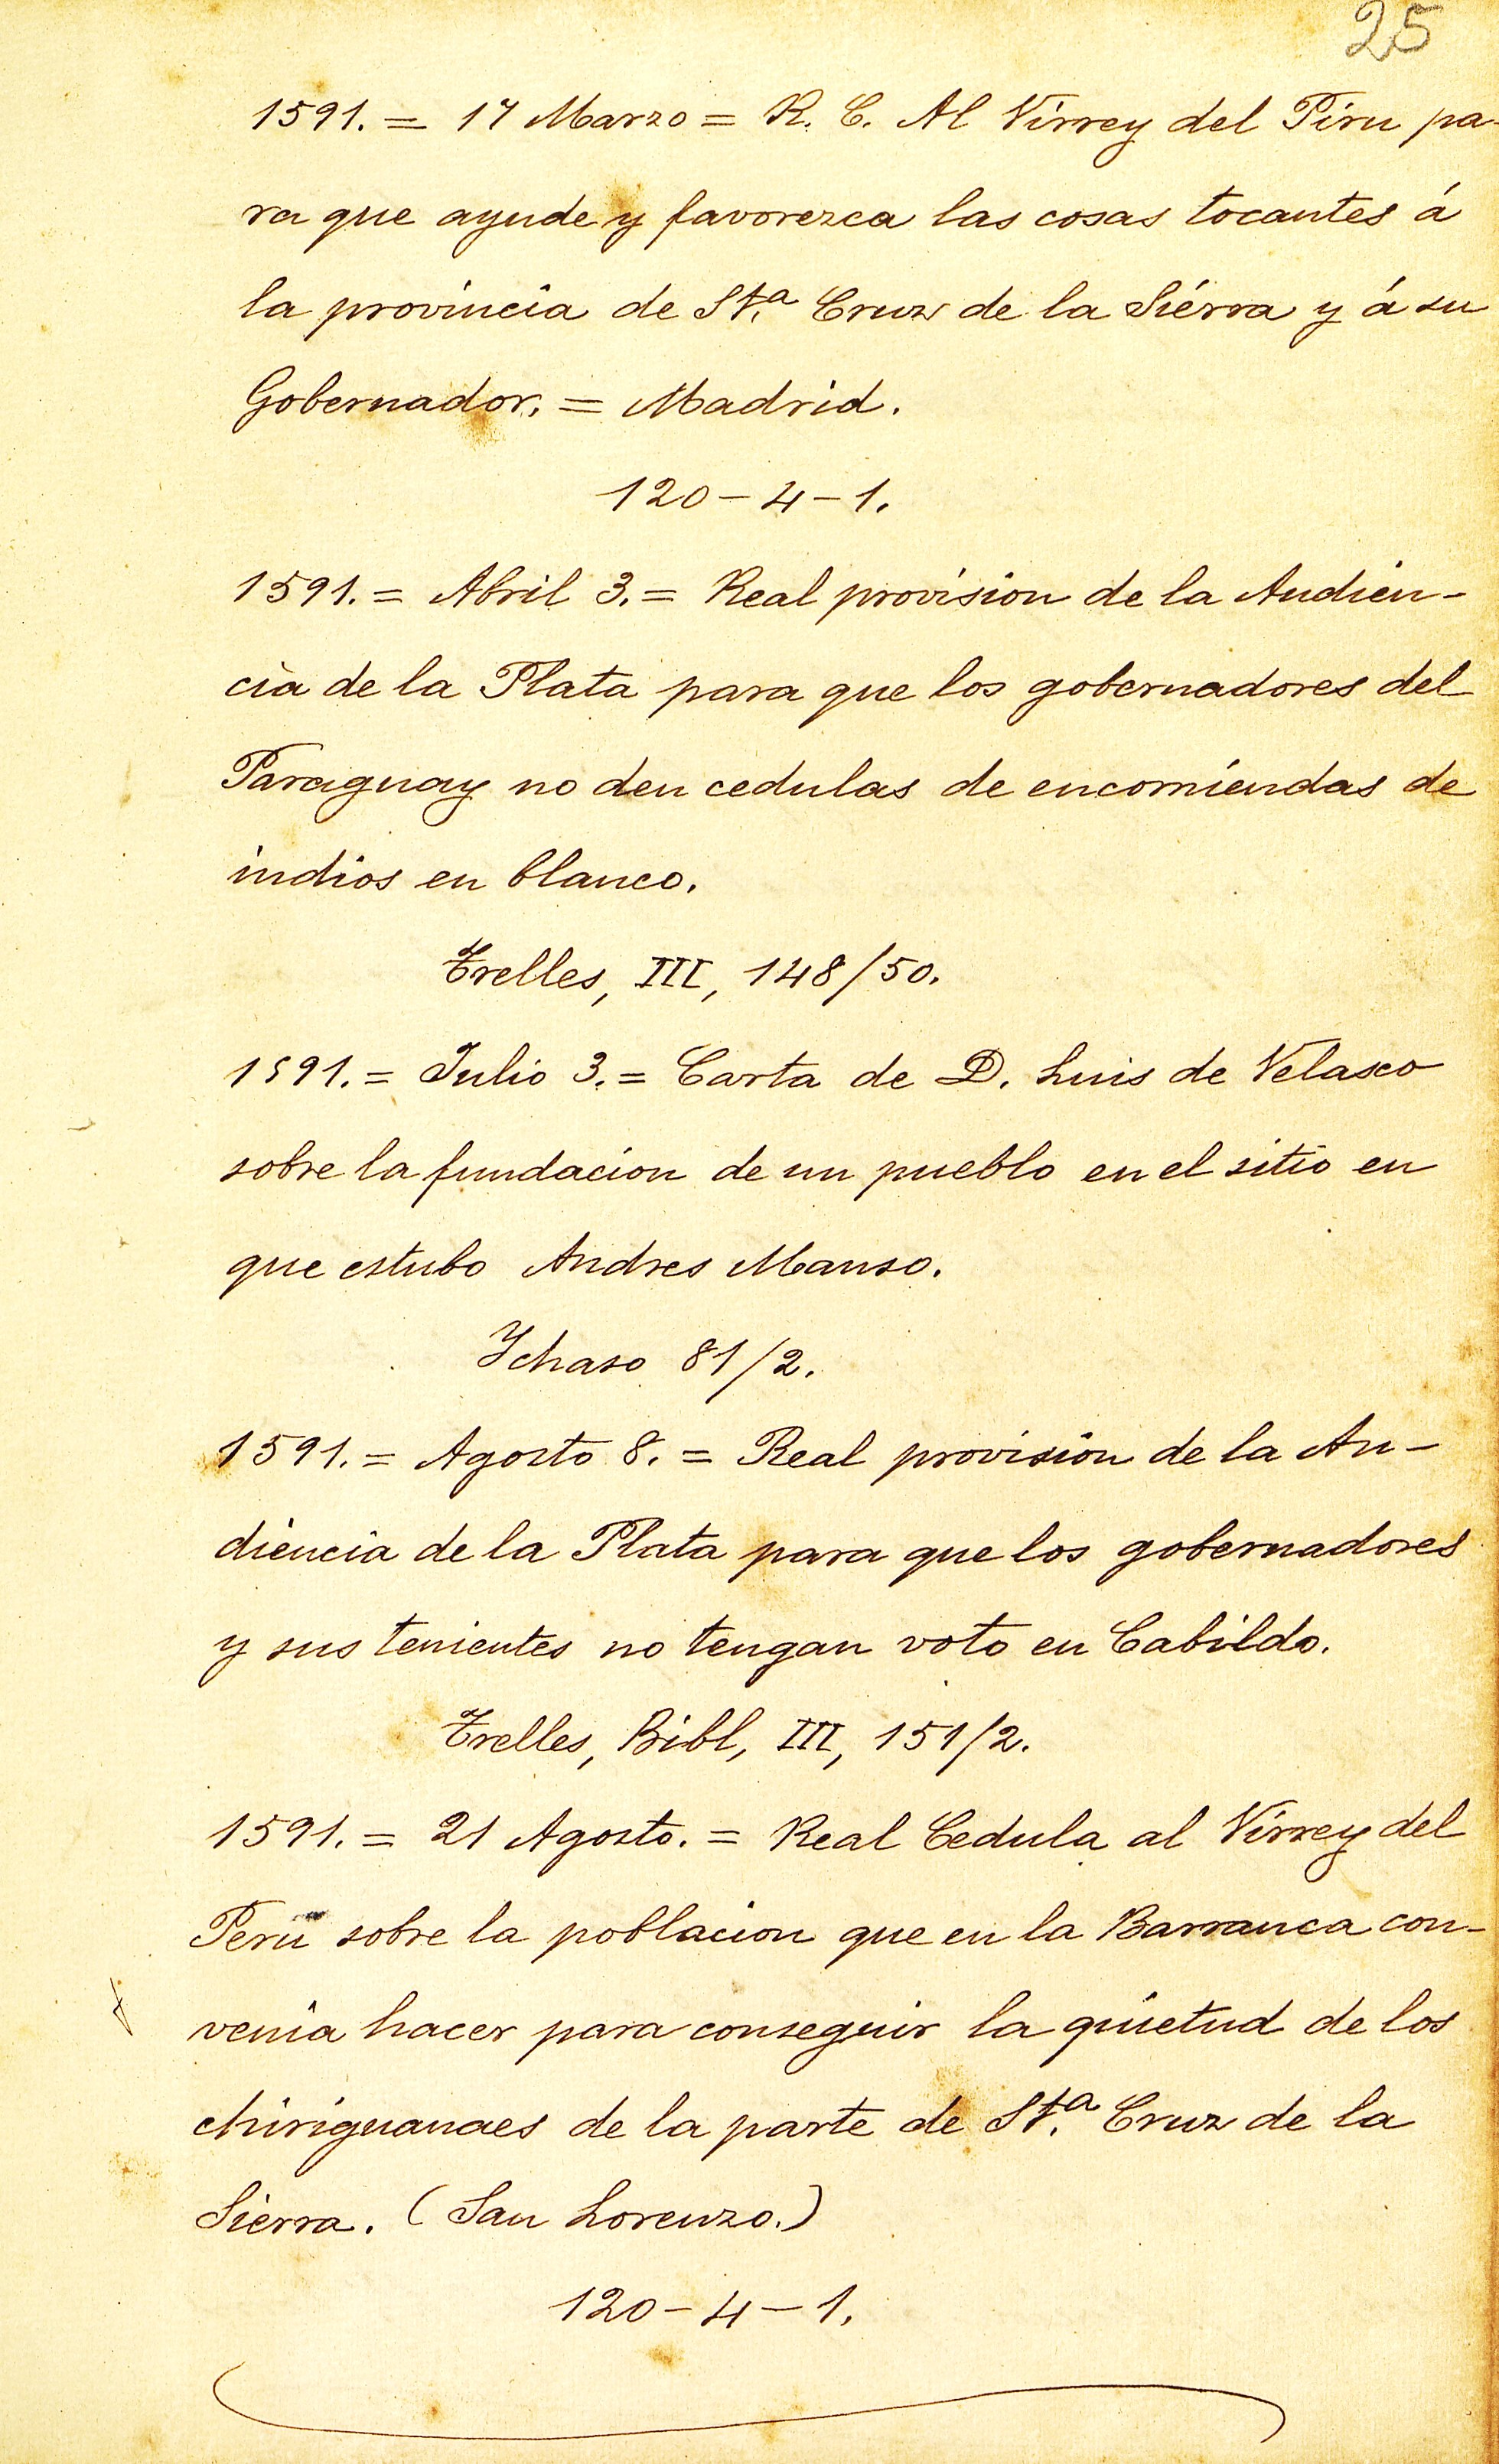 25
1591. = 17 Marzo = R. C. Al Virrey del Piru pa-
ra que ayude y favorezca las cosas tocantes á
la provincia de Sta. Cruz de la Sierra y á su
Gobernador. = Madrid.
120-4-1.
1591. = Abril 3. = Real provision de la Audien-
cia de la Plata para que los gobernadores del
Paraguay no den cedulas de encomiendas de
indios en blanco.
Trelles, III, 148/50.
1591. = Julio 3. = Carta de D. Luis de Velasco
sobre la fundacion de un pueblo en el sitio en
que estubo Andres Manso.
Ychaso 81/2.
1591. = Agosto 8. = Real provision de la Au-
diencia de la Plata para que los gobernadores
y sus tenientes no tengan voto en Cabildo.
Trelles, Bibl, III, 151/2.
1591. = 21 Agosto. = Real Cedula al Virrey del
Perú sobre la poblacion que en la Barranca con-
venia hacer para conseguir la quietud de los
chiriguanaes de la parte de Sta. Cruz de la
Sierra. (San Lorenzo.)
120-4-1.